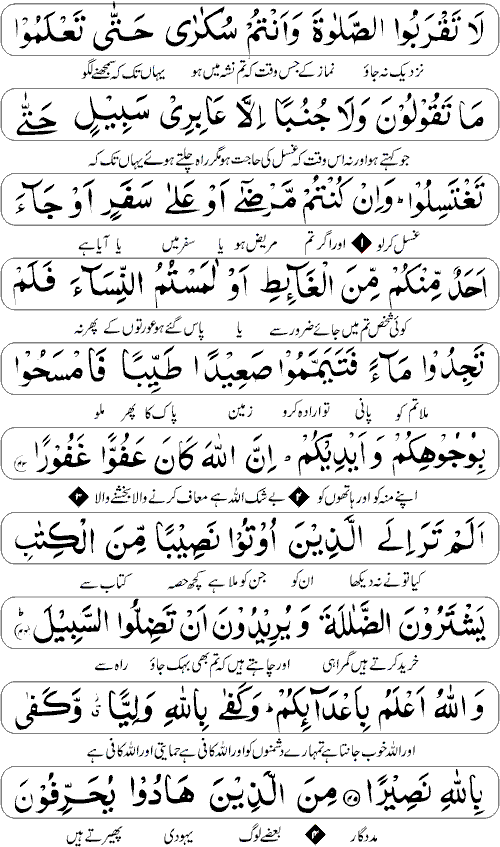 لَا تَقْرَبُوا الصَّلٰوةَ وَاَنْتُمْ سُكٰرٰى حَتّٰى تَعْلَمُوْا
نزدیک نہ جاؤ نماز کے جس وقت کہ تم نشہ میں ہو یہاں تک کہ سمجھنے لگو
مَا تَقُوْلُوْنَ وَلَا جُنُبًا اِلَّا عَابِرِىْ سَبِيْلٍ حَتّٰى
جو کہتے ہو اور نہ اس وقت کہ غسل کی حاجت ہو مگر راہ چلتے ہوئے یہاں تک کہ
تَغْتَسِلُوْا ؕ وَاِنْ كُنْتُمْ مَّرْضٰٓى اَوْ عَلٰى سَفَرٍ اَوْ جَآءَ
غسل کر لو ۱ اور اگر تم مریض ہو یا سفر میں یا آیا ہے
اَحَدٌ مِّنْكُمْ مِّنَ الْغَآئِطِ اَوْ لٰمَسْتُمُ النِّسَآءَ فَلَمْ
کوئی شخص تم میں جائے ضرور سے یا پاس گئے ہو عورتوں کے پھر نہ
تَجِدُوْا مَآءً فَتَيَمَّمُوْا صَعِيْدًا طَيِّبًا فَامْسَحُوْا
ملا تم کو پانی تو ارادہ کرو زمین پاک کا پھر ملو
بِوُجُوْهِكُمْ وَاَيْدِيْكُمْ ؕ اِنَّ اللّٰهَ كَانَ عَفُوًّا غَفُوْرًا ﴿۴۳﴾
اپنے منہ کو اور ہاتھوں کو ۲ بے شک اللہ ہے معاف کرنے والا بخشنے والا ۳
اَلَمْ تَرَ اِلَى الَّذِيْنَ اُوْتُوْا نَصِيْبًا مِّنَ الْكِتٰبِ
کیا تو نے نہ دیکھا ان کو جن کو ملا ہے کچھ حصہ کتاب سے
يَشْتَرُوْنَ الضَّلٰلَةَ وَيُرِيْدُوْنَ اَنْ تَضِلُّوا السَّبِيْلَ ؕ﴿۴۴﴾
خرید کرتے ہیں گمراہی اور چاہتے ہیں کہ تم بھی بہک جاؤ راہ سے
وَاللّٰهُ اَعْلَمُ بِاَعْدَآئِكُمْ ؕ وَكَفٰى بِاللّٰهِ وَلِيًّا ۫ وَّكَفٰى
اور اللہ خوب جانتا ہے تمہارے دشمنوں کو اور اللہ کافی ہے حمایتی اور اللہ کافی ہے
بِاللّٰهِ نَصِيْرًا ﴿۴۵﴾ مِنَ الَّذِيْنَ هَادُوْا يُحَرِّفُوْنَ
مددگار ۴ بعضے لوگ یہودی پھیرتے ہیں